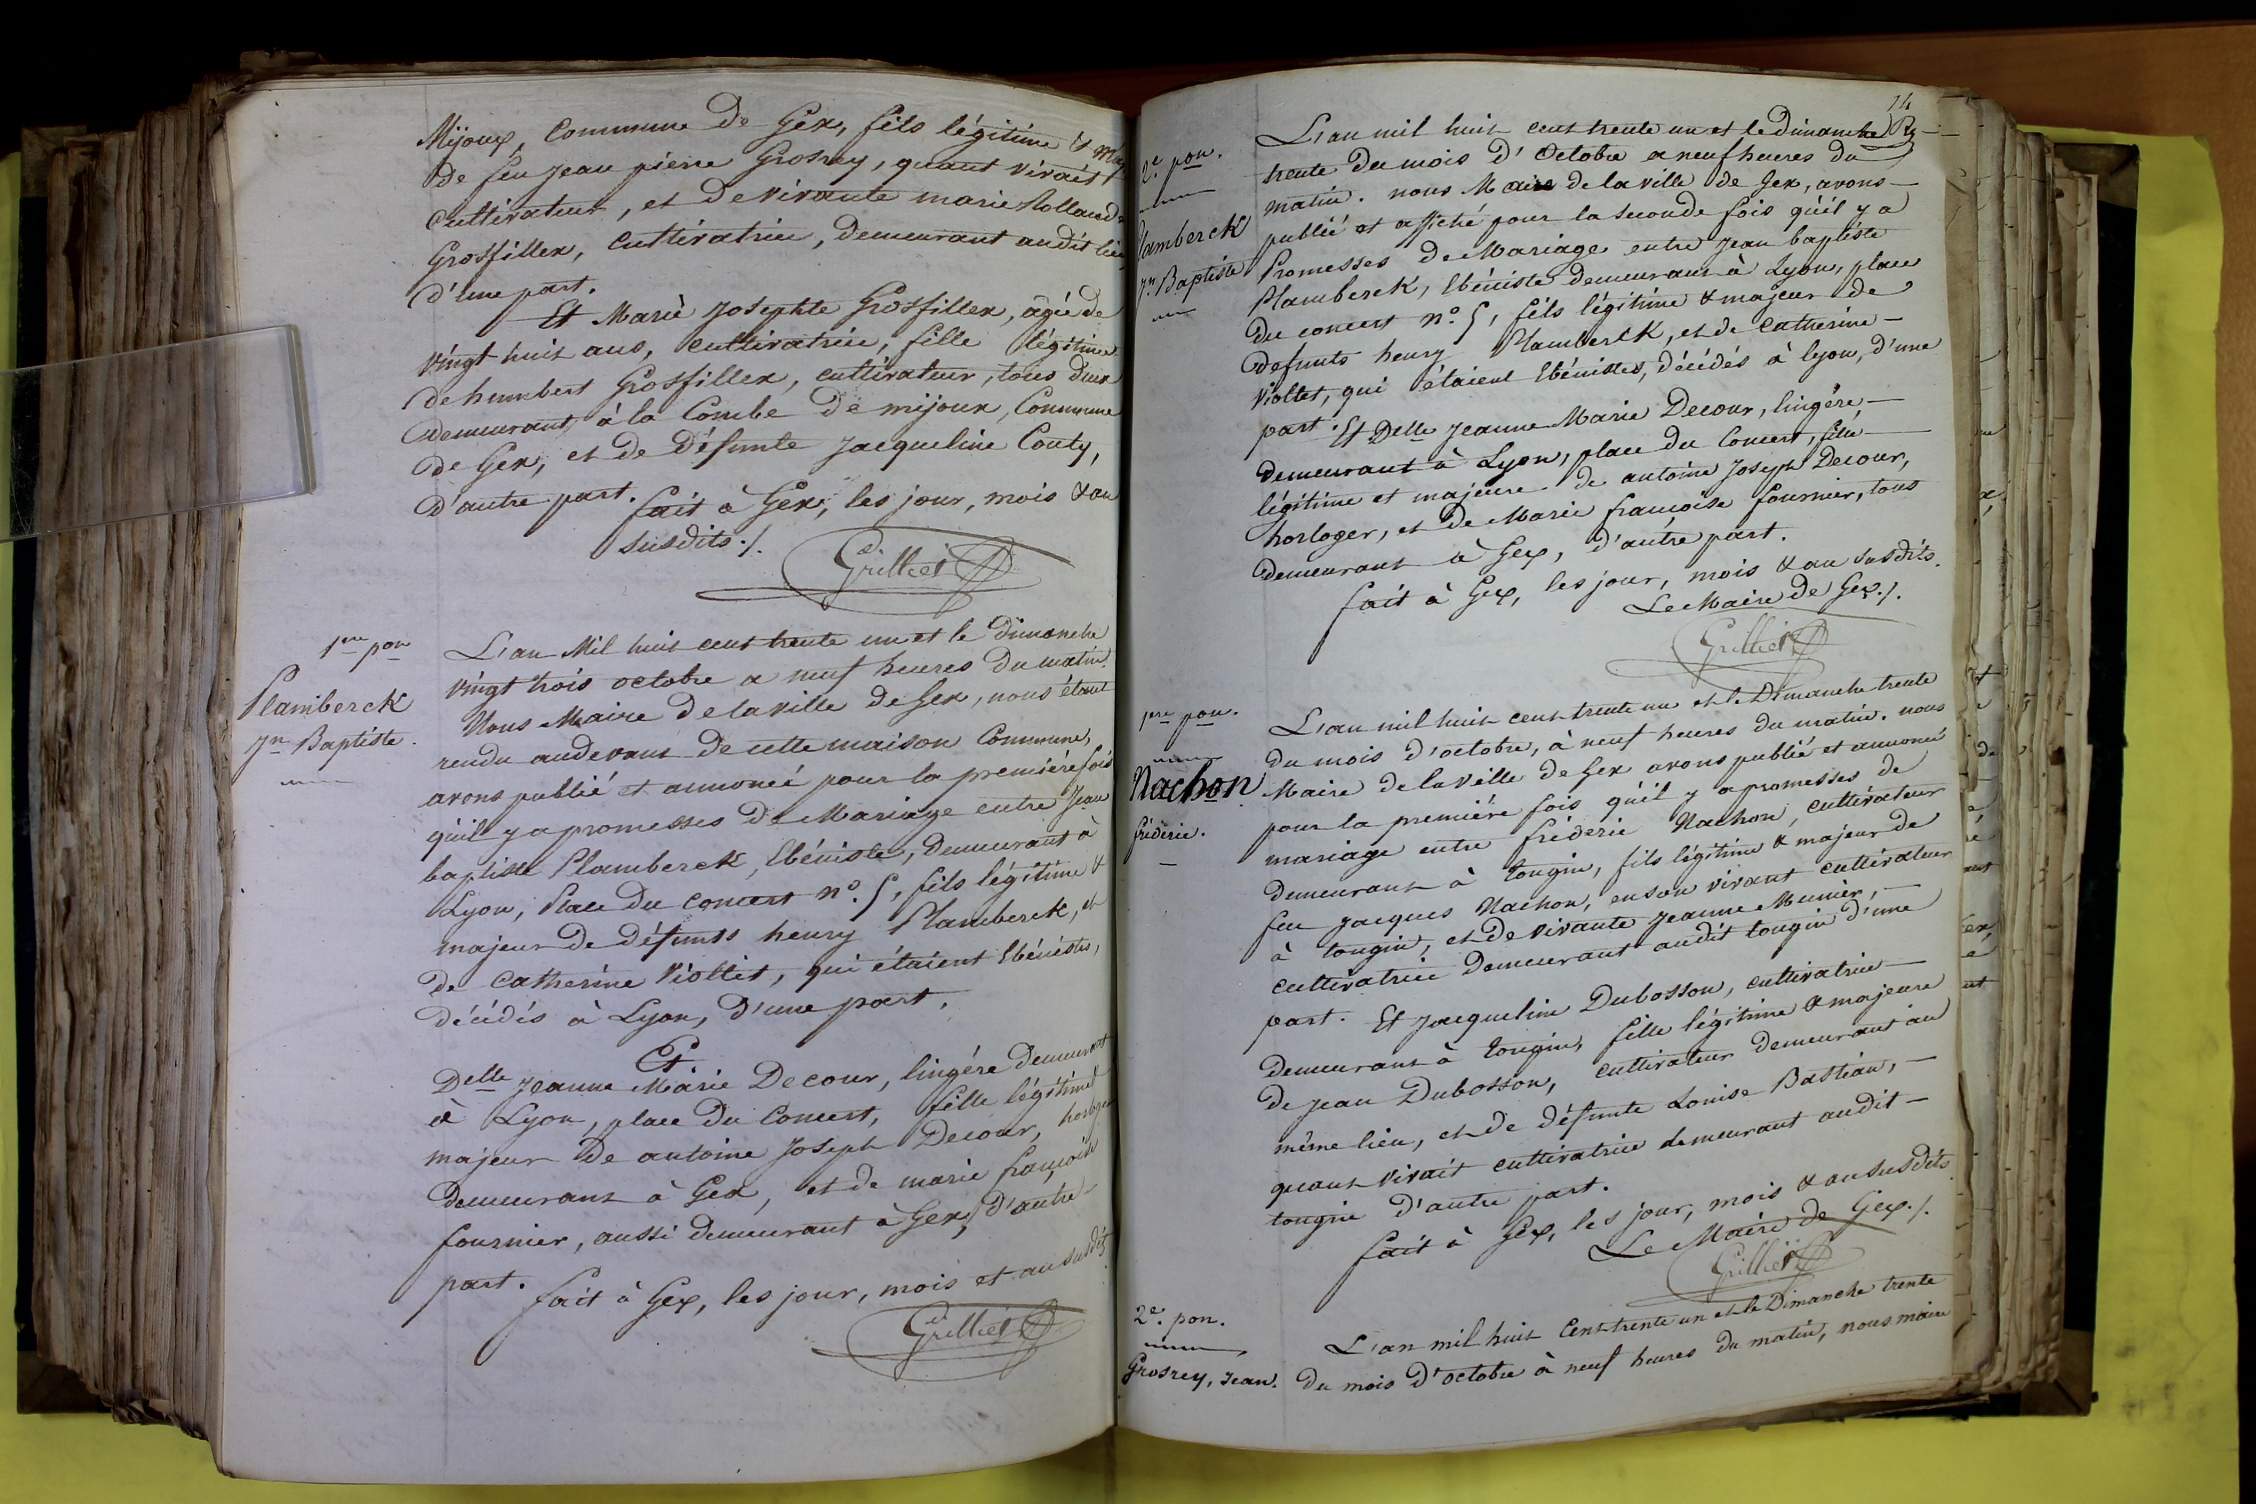 Mijoux, Commune de Gex, fils légitime & maj
de feu jean pierre Grosrey, quant vivait
cultivateur, et de vivante marie Rolland
Grosfillex, cultivatrice, demeurant audit lieu
d'une part.
Et Marie Josephte Grosfillex, agée de
vingt huit ans, cultivatrice, fille légitime
de humbert Grosfillex, cultivateur, tous deux
demeurant à la Combe de mijoux, Commune
de Gex, et de défunte jacqueline Conty,
d'autre part.
fait à Gex, les jour, mois & an
susdits ./.
Grilliet
1ere pon
Plamberck
Jn Baptiste.
L'an Mil huit cent trente un et le dimanche
vingt trois octobre a neuf heures du matin.
Nous Maire de la ville de Gex, nous étant
rendu audevant de cette maison Commune,
avons publié et annoncé pour la première fois
qu'il y a promesses de Mariage entre Jean
baptiste Plamberck, Ebéniste, demeurant à
Lyon, Place du concert n°. 5, fils légitime &
majeur de défunts henry Plamberck, et
de Catherine Viollet, qui étaient Ebénistes,
décédés à Lyon, d'une part,
Et
Delle Jeanne Marie Decour, lingère demeurant
à Lyon, place du Concert, fille légitime
majeur de antoine Joseph Decour, horloger
demeurant à Gex, et de marie françoise
fournier, aussi demeurant à Gex, d'autre
part.
fait à Gex, les jour, mois et an susdits
Grilliet
14
2e. pon.
Plamberck
Jn Baptiste
L'an mil huit cent trente un et le dimanche
trente du mois d'Octobre a neuf heures du
matin. nous Maire de la ville de Gex, avons
publié et affiché pour la seconde fois qu'il y a
Promesses de Mariage entre Jean baptiste
Plamberck, Ebéniste demeurant à Lyon, place
du concert n°. 5, fils légitime & majeur de
defunts henry Plamberck, et de Catherine
Viollet, qui étaient Ebénistes, décédés à lyon, d'une
part. Et Delle Jeanne Marie Decour, lingère,
demeurant à Lyon, place du Concert, fille
légitime et majeure de antoine Joseph Decour,
horloger, et de Marie françoise fournier, tous
demeurant à Gex, d'autre part.
fait à Gex, les jour, mois & an susdits.
Le Maire de Gex ./.
Grilliet
1ere pon.
Nachon
fréderic.
L'an mil huit cent trente un et le Dimanche trente
du mois d'octobre, à neuf heures du matin. nous
Maire de la Ville de Gex avons publié et annoncé
pour la première fois qu'il y a promesses de
mariage entre fréderic Nachon, cultivateur
demeurant à tougin, fils légitime & majeur de
feu jacques Nachon, en son vivant cultivateur
à tougin, et de vivante Jeanne Meunier,
cultivatrice demeurant audit tougin d'une
part. Et jacqueline Dubosson, cultivatrice
demeurant à tougin, fille légitime & majeure
de jean Dubosson, cultivateur demeurant au
même lieu, et de défunte Louise Bastian,
quant vivait cultivatrice demeurant audit
tougin d'autre part.
fait à Gex, les jour, mois & an susdits
Le Maire de Gex ./.
Grilliet
2e. pon.
Grosrey, Jean.
L'an mil huit Cent trente un et le Dimanche trente
du mois d'octobre à neuf heures du matin, nous maire